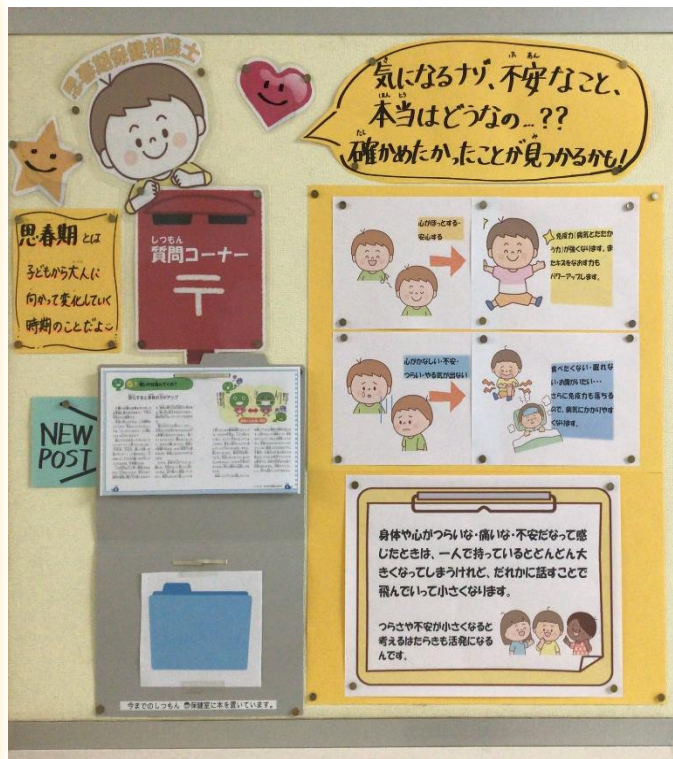 思春期保健相談士
気になるナゾ、不安なこと、
本当はどうなの…??
確かめたかったことが見つかるかも!
思春期とは
子どもから大人に
向かって変化していく
時期のことだよ
しつもん
質問コーナー
〒
NEW
POST
心がほっとする・
安心する
免疫力(病気とたたか
う力)が強くなります。ま
たキズをなおす力も
パワーアップします。
心がかなしい・不安・
つらい・やる気が出ない
食べたくない・眠れな
い・お腹がいたい・・・
さらに免疫力も落ちる
ので、病気にかかりやす
くなります。
身体や心がつらいな・痛いな・不安だなって感
じたときは、一人で持っているとどんどん大
きくなってしまうけれど、だれかに話すことで
飛んでいって小さくなります。
つらさや不安が小さくなると
考えるはたらきも活発になる
んです。
今までのしつもん 保健室に本を置いています。